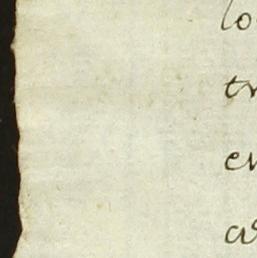 lo
tr
en